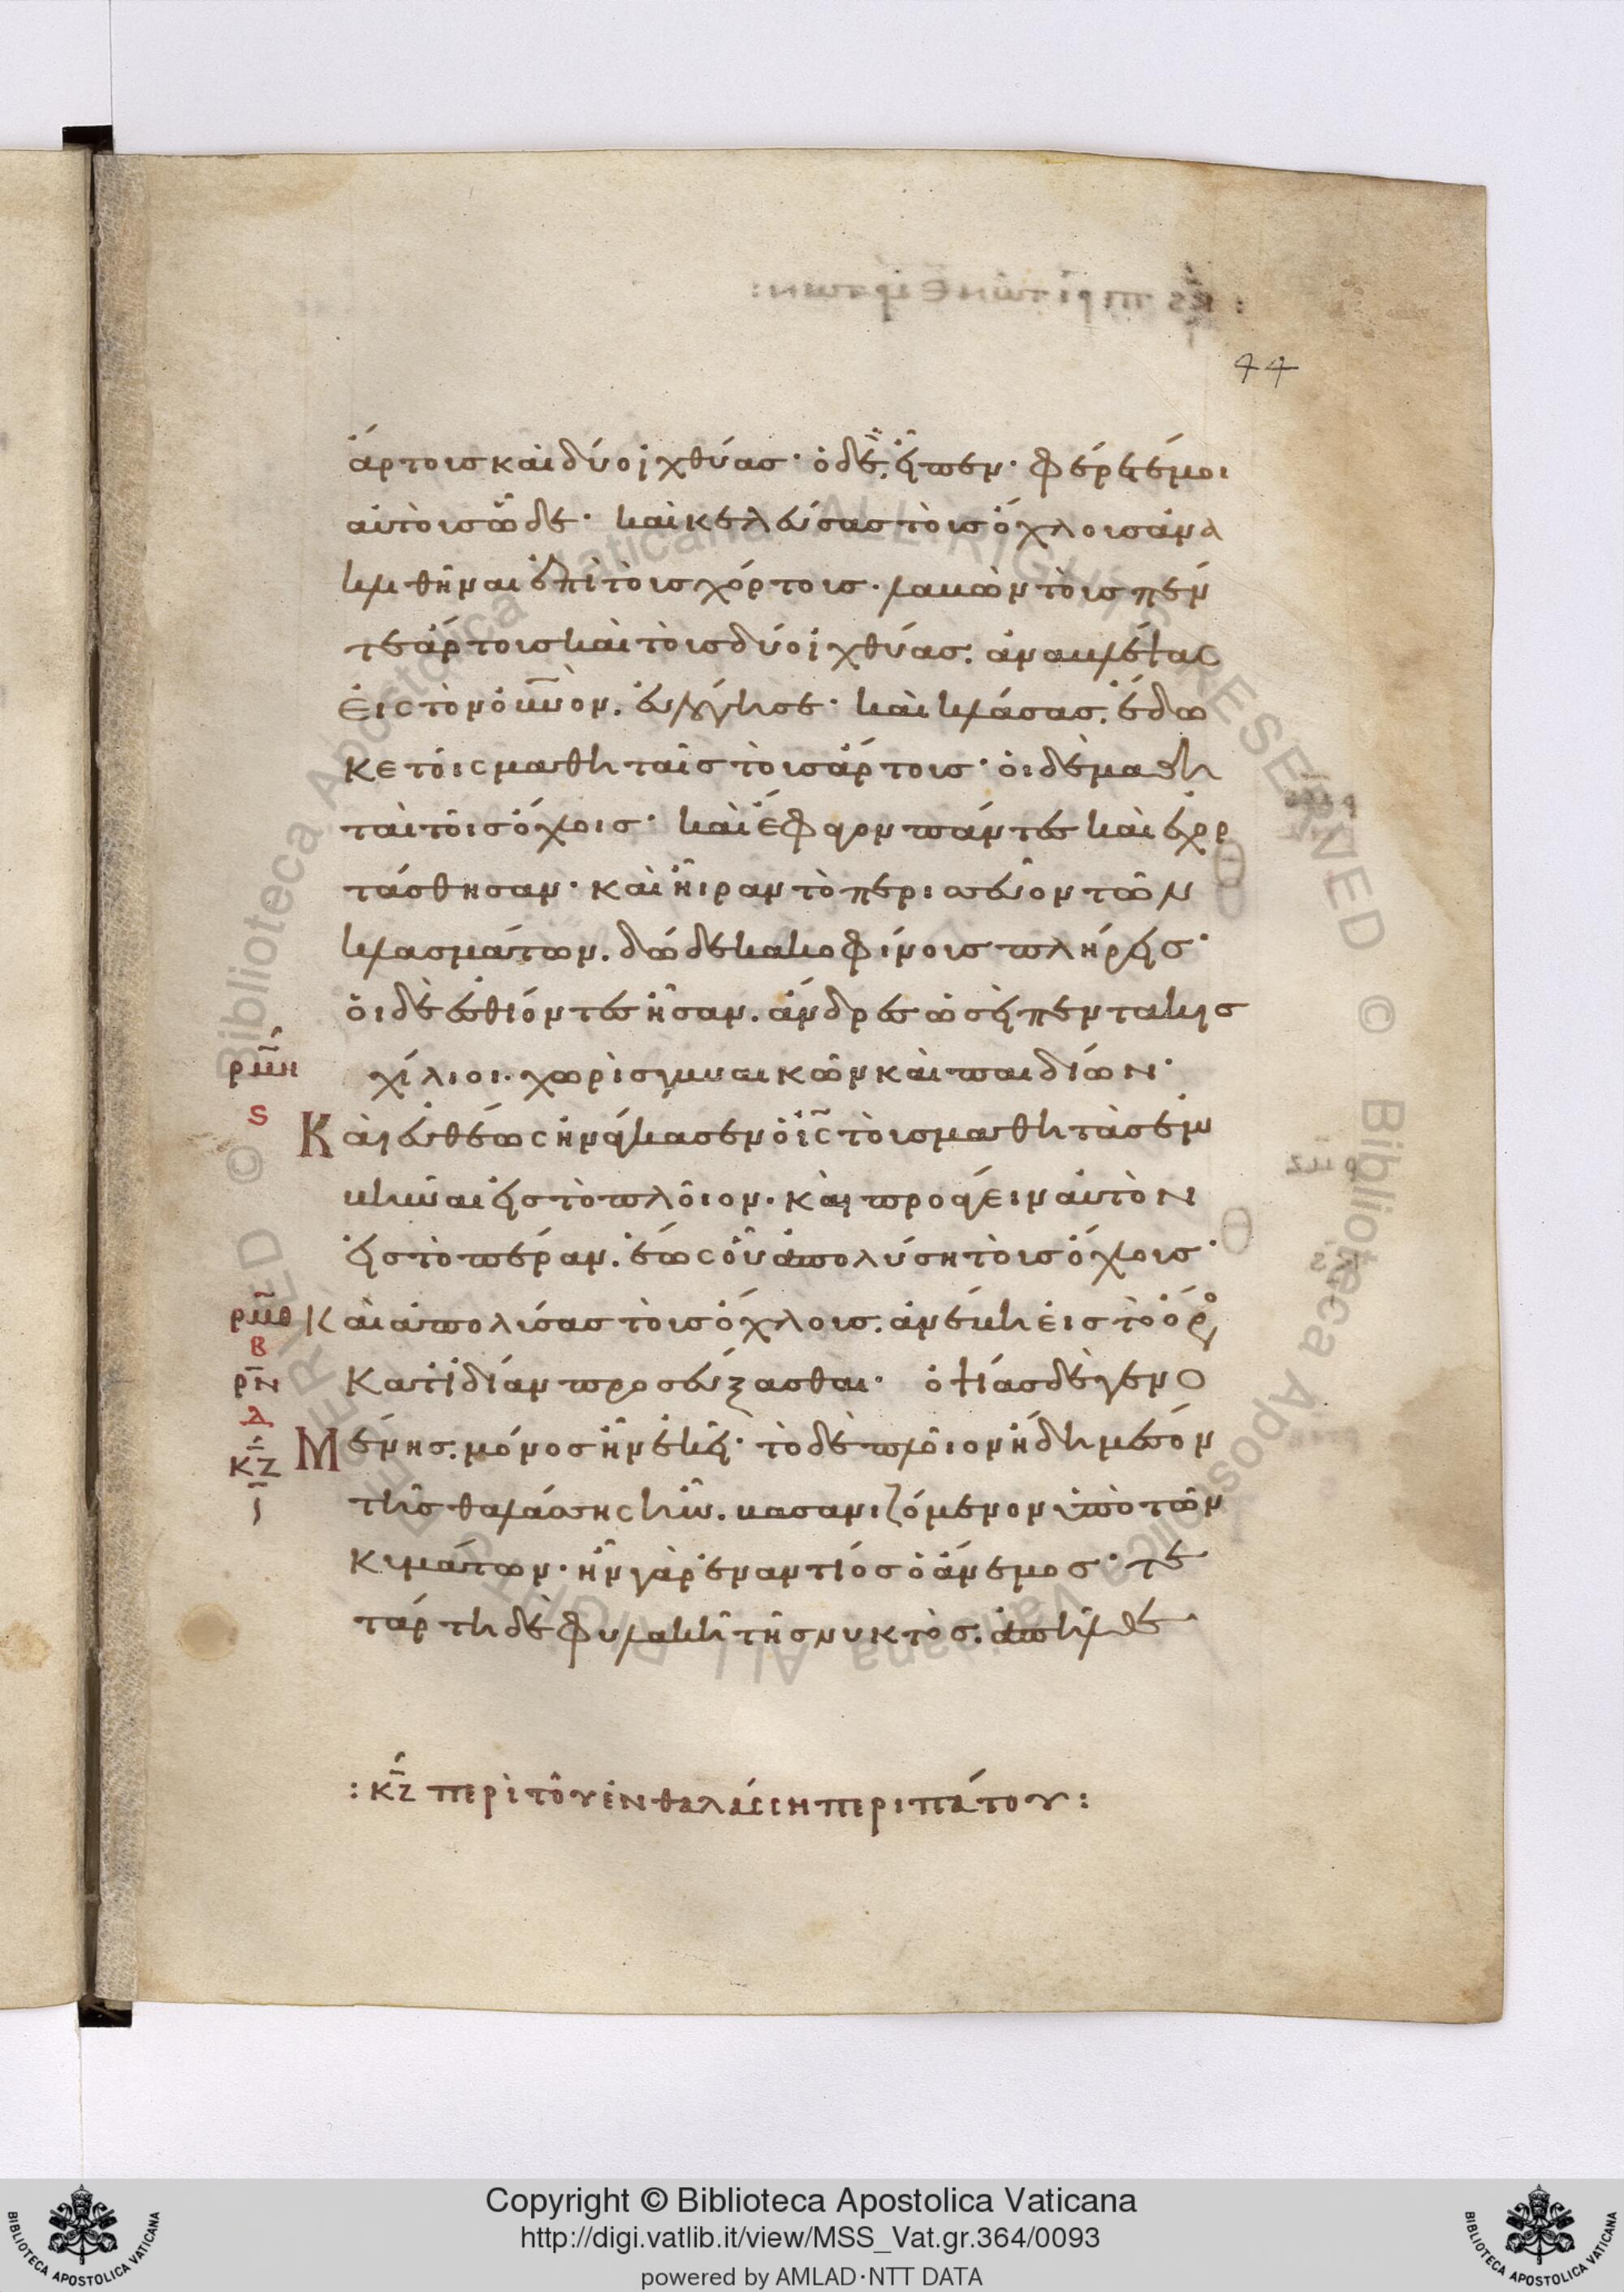 44
ἄρτους καὶ δύο ἰχθύας· ὁ δὲ εἶπεν· φέρετέ μοι
αὐτοὺς ὧδε· καὶ κελεύσας τοὺς ὄχλους ἀνα
κλιθῆναι ἐπὶ τοὺς χόρτους· λαβὼν τοὺς πέν
τε ἄρτους καὶ τοὺς δύο ἰχθύας. ἀναβλέψας
εἰς τὸν οὐνὸν. εὐλόγησε· καὶ κλάσας. ἔδω
κε τοῖς μαθηταῖς τοὺς ἄρτους· οἱ δὲ μαθη
ταὶ τοῖς ὄχλοις· καὶ ἔφαγον πάντες καὶ ἐχορ
τάσθησαν· καὶ ἦραν τὸ περισσεῦον τῶν
κλασμάτων. δώδεκα κοφίνους πλήρεις·
οἱ δὲ ἐσθίοντες ἦσαν. ἄνδρες ὡσεὶ πεντακισ
ρμη χίλιοι. χωρὶς γυναικῶν καὶ παιδίων·
ς
Καὶ εὐθέως ἠνάγκασεν ὁ ις τοὺς μαθητὰς ἐμ
βῆναι εἰς τὸ πλοῖον. καὶ προάγειν αὐτὸν
εἰς τὸ πέραν. ἕως οὗ ἀπολύσῃ τοὺς ὄχλους·
ρμθ Καὶ ἀπολύσας τοὺς ὄχλους. ἀνέβη εἰς τὸ ὄρο
Β
ρν κατιδίαν προσεύξασθαι· ὀψίας δὲ γενο
Δ
κζ Μένης. μόνος ἦν ἐκεῖ· τὸ δὲ πλοῖον ἤδη μέσον
ι τῆς θαλάσσης ἦν. βασανιζόμενον ὑπὸ τῶν
κυμάτων· ἦν γὰρ ἐναντίος ὁ ἄνεμος· τε
τάρτῃ δὲ φυλακῇ τῆς νυκτὸς. ἀπῆλθε
: κζ περὶ τοῦ ἐν θαλάσσῃ περιπάτου :
Copyright © Biblioteca Apostolica Vaticana
http://digi.vatlib.it/view/MSS_Vat.gr.364/0093
powered by AMLAD·NTT DATA
BIBLIOTECA APOSTOLICA VATICANA
BIBLIOTECA APOSTOLICA VATICANA